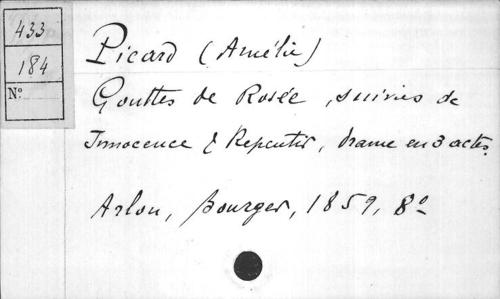 433
184
N°
Picard (Amélie)
Gouttes de Rosée, suivies de
Innocence & Repentir, drame en 3 actes.
Arlon, Bourger, 1859, 8°